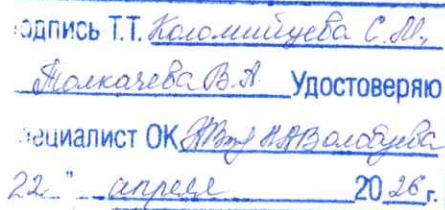 одпись Т.Т. Коломийцева С.М.,
Толкачева В.А. Удостоверяю
пециалист ОК Н.А.Волобуева
22 " апреле 20 26 г.